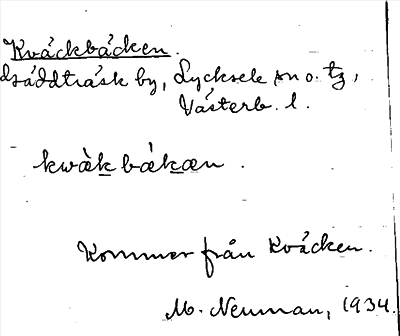 Kväckbäcken.
Gäddträsk by, Lycksele sn o. tg,
Västerb. l.
kwàk bækæn.
Kommer från Kväcken.
M. Neuman, 1934.